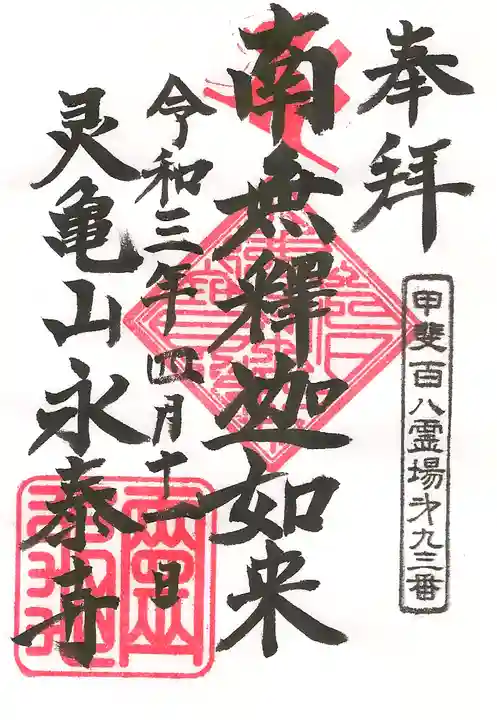 奉拝
甲斐百八霊場才九三番
南無釋迦如来
令和三年四月十一日
灵亀山永泰寺